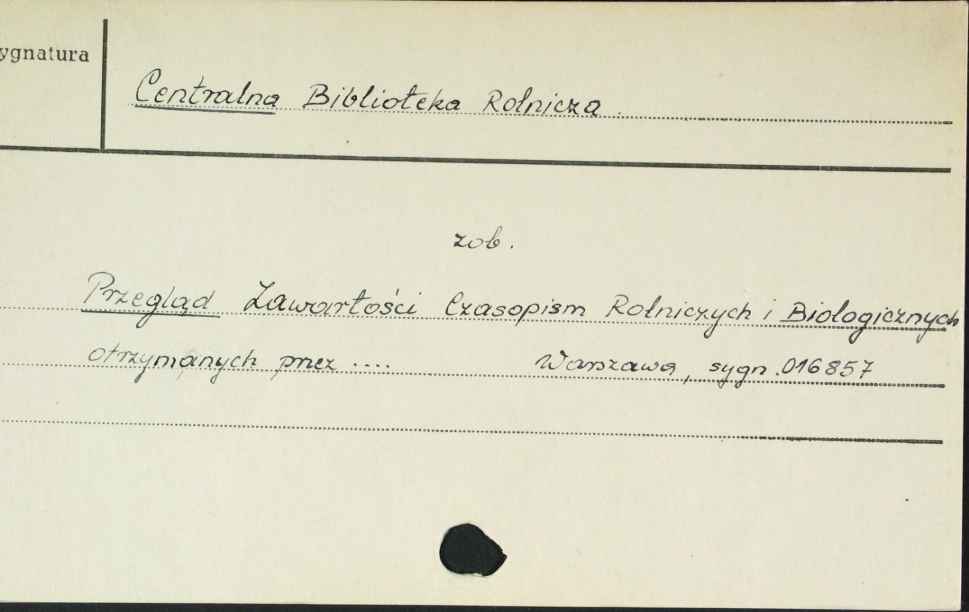 ygnatura
Centralna Biblioteka Rolnicza.
zob.
Przegląd Zawartości Czasopism Rolniczych i Biologicznych
otrzymanych przez .... Warszawa, sygn. 016857